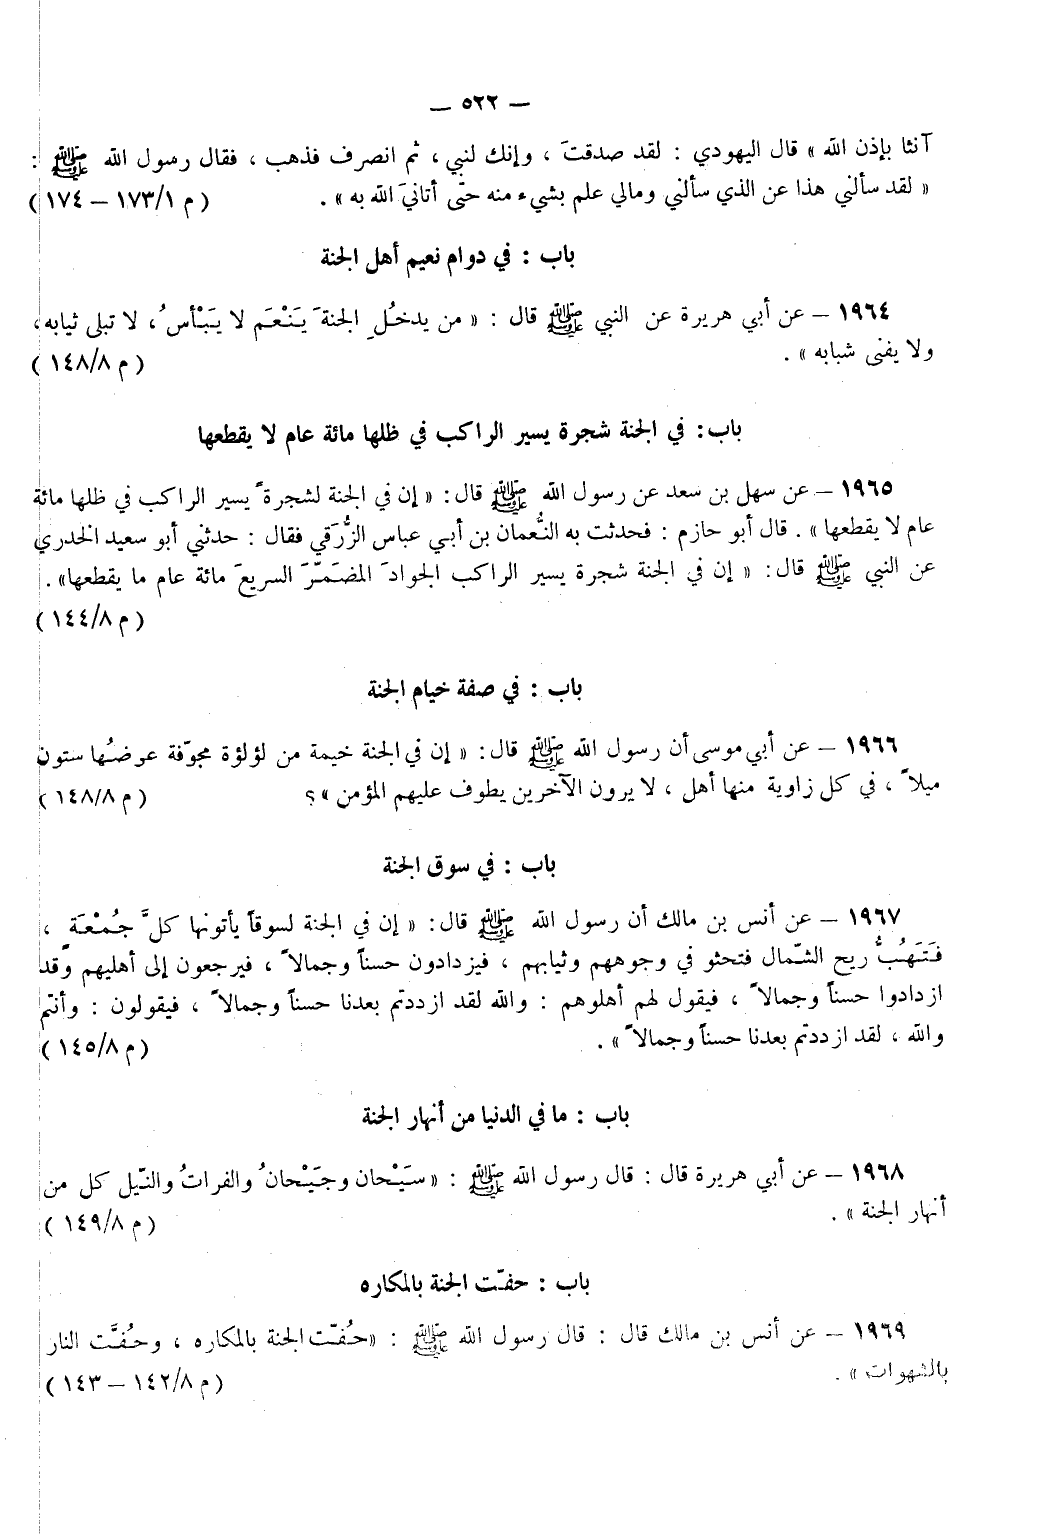 — ٥٢٢ —
آنثا بإذن الله » قال اليهودي : لقد صدقتَ ، وإنك لنبي ، ثم انصرف فذهب ، فقال رسول الله ﷺ :
« لقد سألني هذا عن الذي سألني ومالي علم بشيء منه حتّى أتانيَ الله به » . ( م ١٧٣/١ – ١٧٤ )
باب : في دوام نعيم أهل الجنة
١٩٦٤ – عن أبي هريرة عن النبي ﷺ قال : « من يدخلُ الجنةَ يَنْعَم لا يَبْأسُ ، لا تبلى ثيابه ،
ولا يفنى شبابه » . ( م ١٤٨/٨ )
باب : في الجنة شجرة يسير الراكب في ظلها مائة عام لا يقطعها
١٩٦٥ – عن سهل بن سعد عن رسول الله ﷺ قال : « إن في الجنة لشجرةً يسير الراكب في ظلها مائة
عام لا يقطعها » . قال أبو حازم : فحدثت به النُّعمان بن أبي عباس الزُّرَقي فقال : حدثني أبو سعيد الخدري
عن النبي ﷺ قال : « إن في الجنة شجرة يسير الراكب الجوادَ المضَمَّرَ السريعَ مائة عام ما يقطعها» .
( م ١٤٤/٨ )
باب : في صفة خيام الجنة
١٩٦٦ – عن أبي موسى أن رسول الله ﷺ قال : « إن في الجنة خيمة من لؤلؤة مجوّفة عرضُها ستون
ميلاً ، في كل زاوية منها أهل ، لا يرون الآخرين يطوف عليهم المؤمن » ؟ ( م ١٤٨/٨ )
باب : في سوق الجنة
١٩٦٧ – عن أنس بن مالك أن رسول الله ﷺ قال : « إن في الجنة لسوقاً يأتونها كلَّ جُمْعَةٍ ،
فَتَهُبُّ ريح الشّمال فتحثو في وجوههم وثيابهم ، فيزدادون حسناً وجمالاً ، فيرجعون إلى أهليهم وقد
ازدادوا حسناً وجمالاً ، فيقول لهم أهلوهم : والله لقد ازددتم بعدنا حسناً وجمالاً ، فيقولون : وأنتم
والله ، لقد ازددتم بعدنا حسناً وجمالاً » . ( م ١٤٥/٨ )
باب : ما في الدنيا من أنهار الجنة
١٩٦٨ – عن أبي هريرة قال : قال رسول الله ﷺ : « سَيْحان وجَيْحانُ والفراتُ والنّيل كل من
أنهار الجنة » . ( م ١٤٩/٨ )
باب : حفّت الجنة بالمكاره
١٩٦٩ – عن أنس بن مالك قال : قال رسول الله ﷺ : «حُفّت الجنة بالمكاره ، وحُفَّت النار
بالشهوات » . ( م ١٤٢/٨ – ١٤٣ )